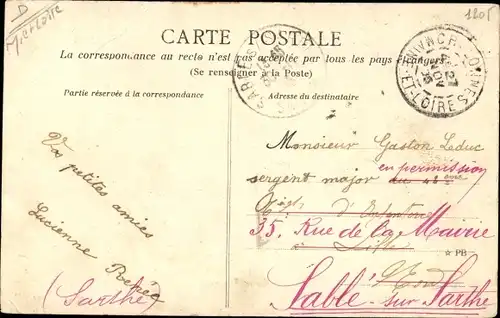 D
Pierrotte
1205
CARTE POSTALE
La correspondance au recto n'est pas acceptée par tous les pays étrangers.
(Se renseigner à la Poste)
Partie réservée à la correspondance
Adresse du destinataire
Vos petites amies
Lucienne Renée
(Sarthe)
Monsieur Gaston Leduc
en permission
sergent major au
Régt d'Infanterie
35, Rue de la Mairie
à Lille
* PB
Nord
Sablé-sur-Sarthe